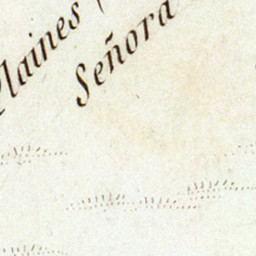 Plaines
Señora